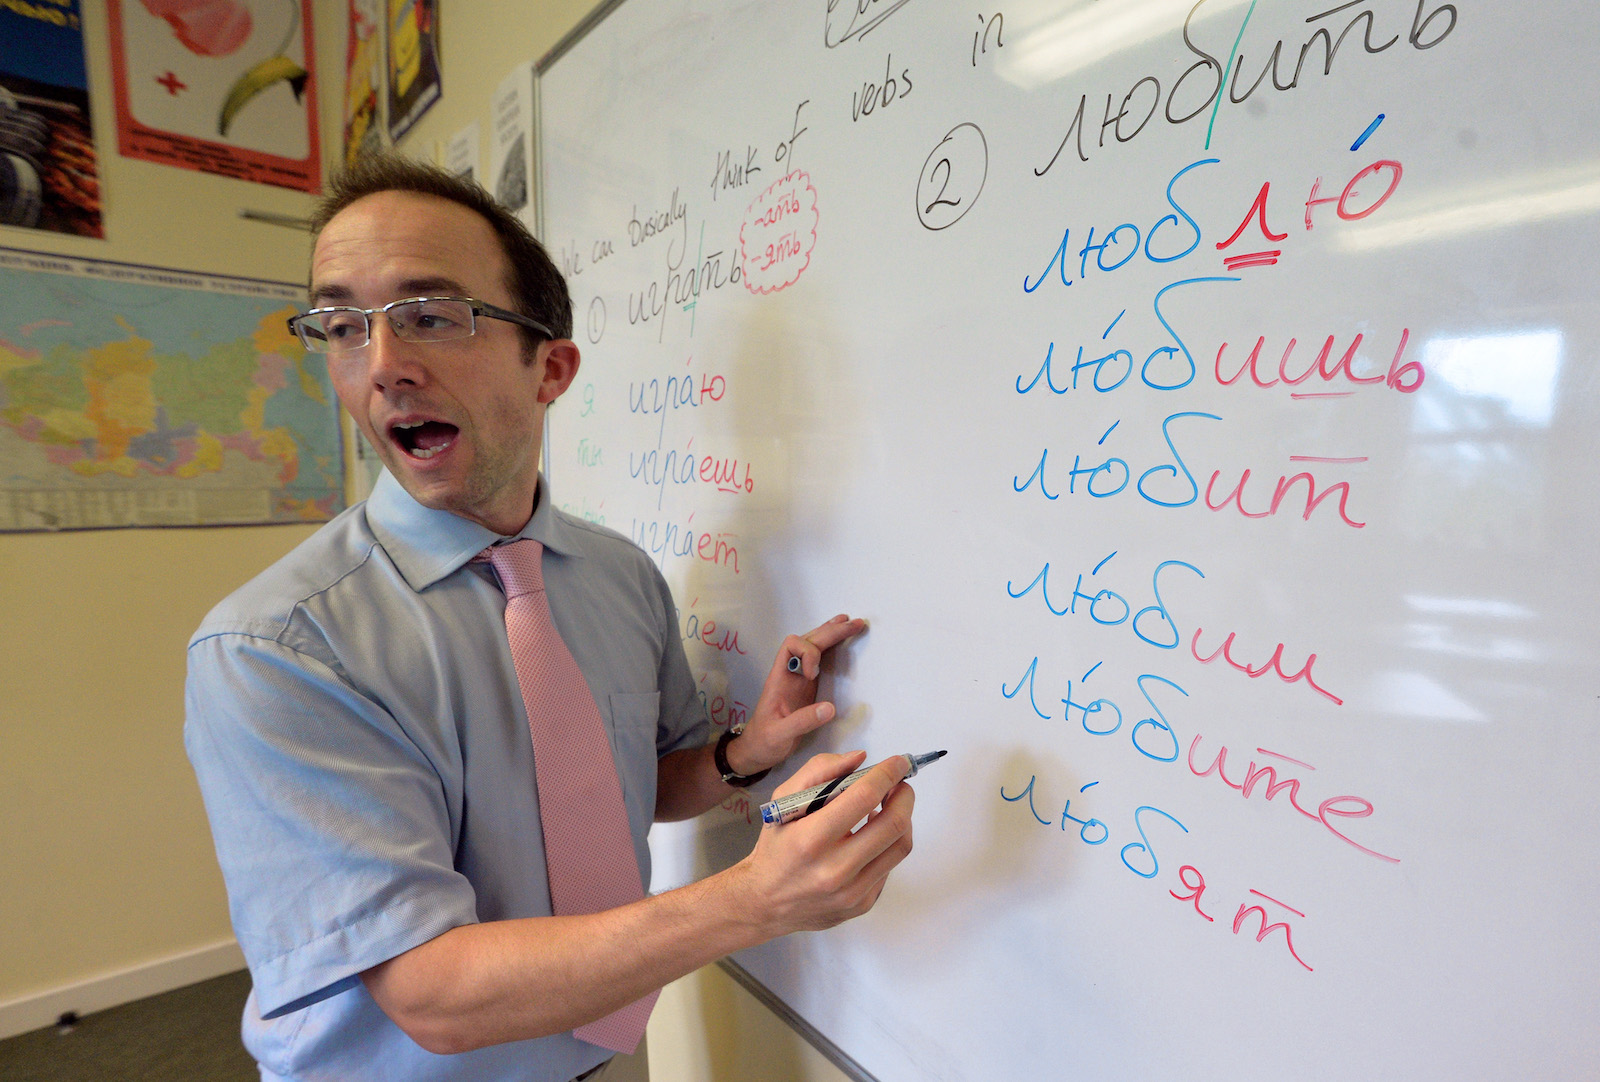 We can basically think of verbs in
① играть
-ать
-ять
я играю
ты играешь
играет
аем
ает
② любить
люблю́
лю́бишь
лю́бит
лю́бим
лю́бите
лю́бят